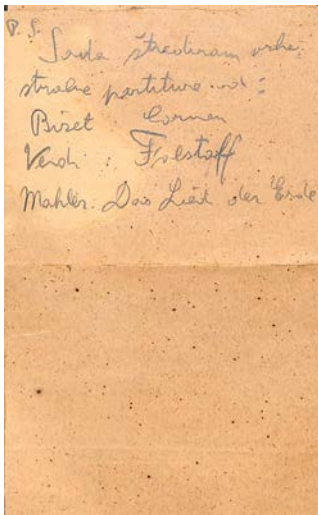 P.S.
Sada študiram orke-
stralne partiture od:
Bizet Carmen
Verdi: Falstaff
Mahler: Das Lied der Erde